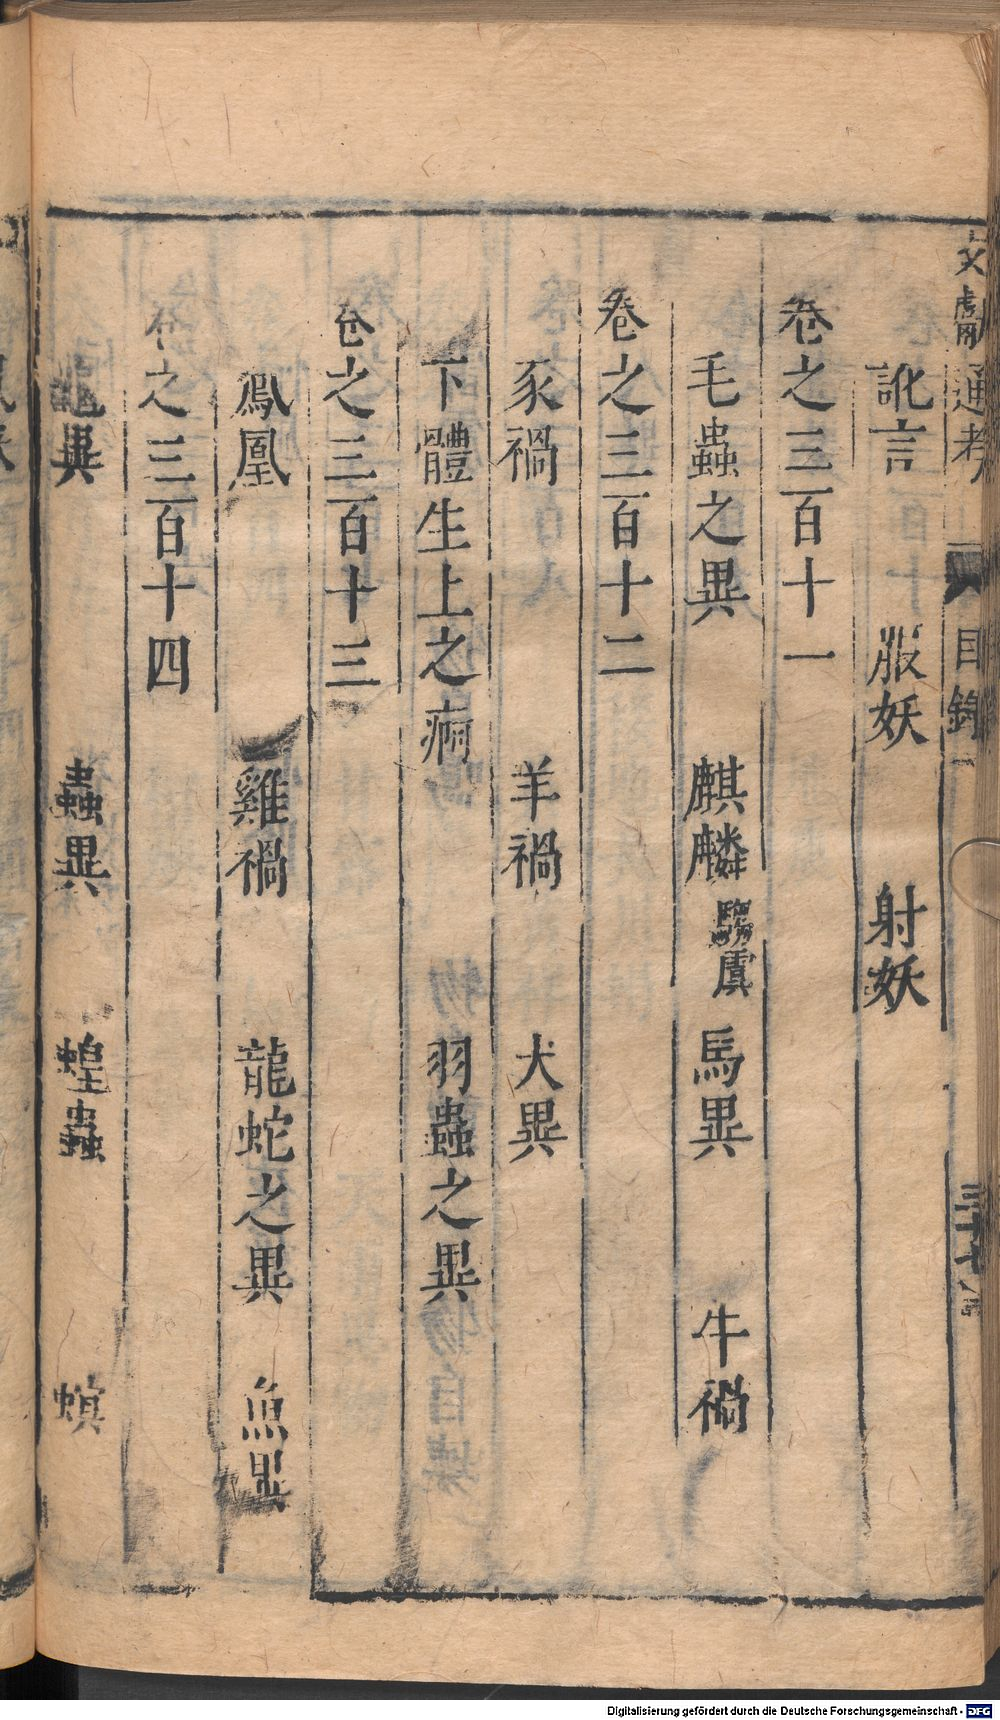 文獻通考 目錄
訛言 服妖 射妖
卷之三百十一
毛蟲之異 麒麟 騶虞 馬異 牛禍
卷之三百十二
豕禍 羊禍 犬異
下體生上之痾 羽蟲之異
卷之三百十三
鳳凰 雞禍 龍蛇之異 魚異
卷之三百十四
龜異 蟲異 蝗蟲 螟
Digitalisierung gefördert durch die Deutsche Forschungsgemeinschaft - DFG